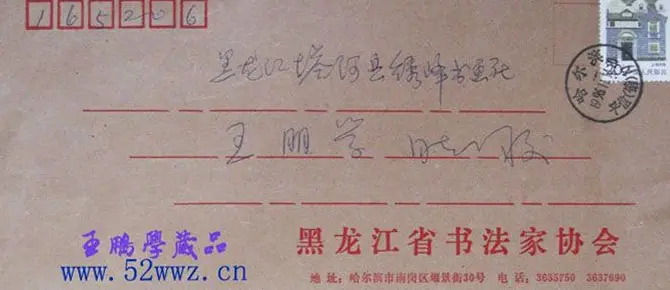 165206
黑龙江塔河县绣峰书画社
王朋学
哈尔滨
王鵬學藏品
www.52wwz.cn
黑龙江省书法家协会
地址:哈尔滨市南岗区耀景街30号 电话:3635750 3637690